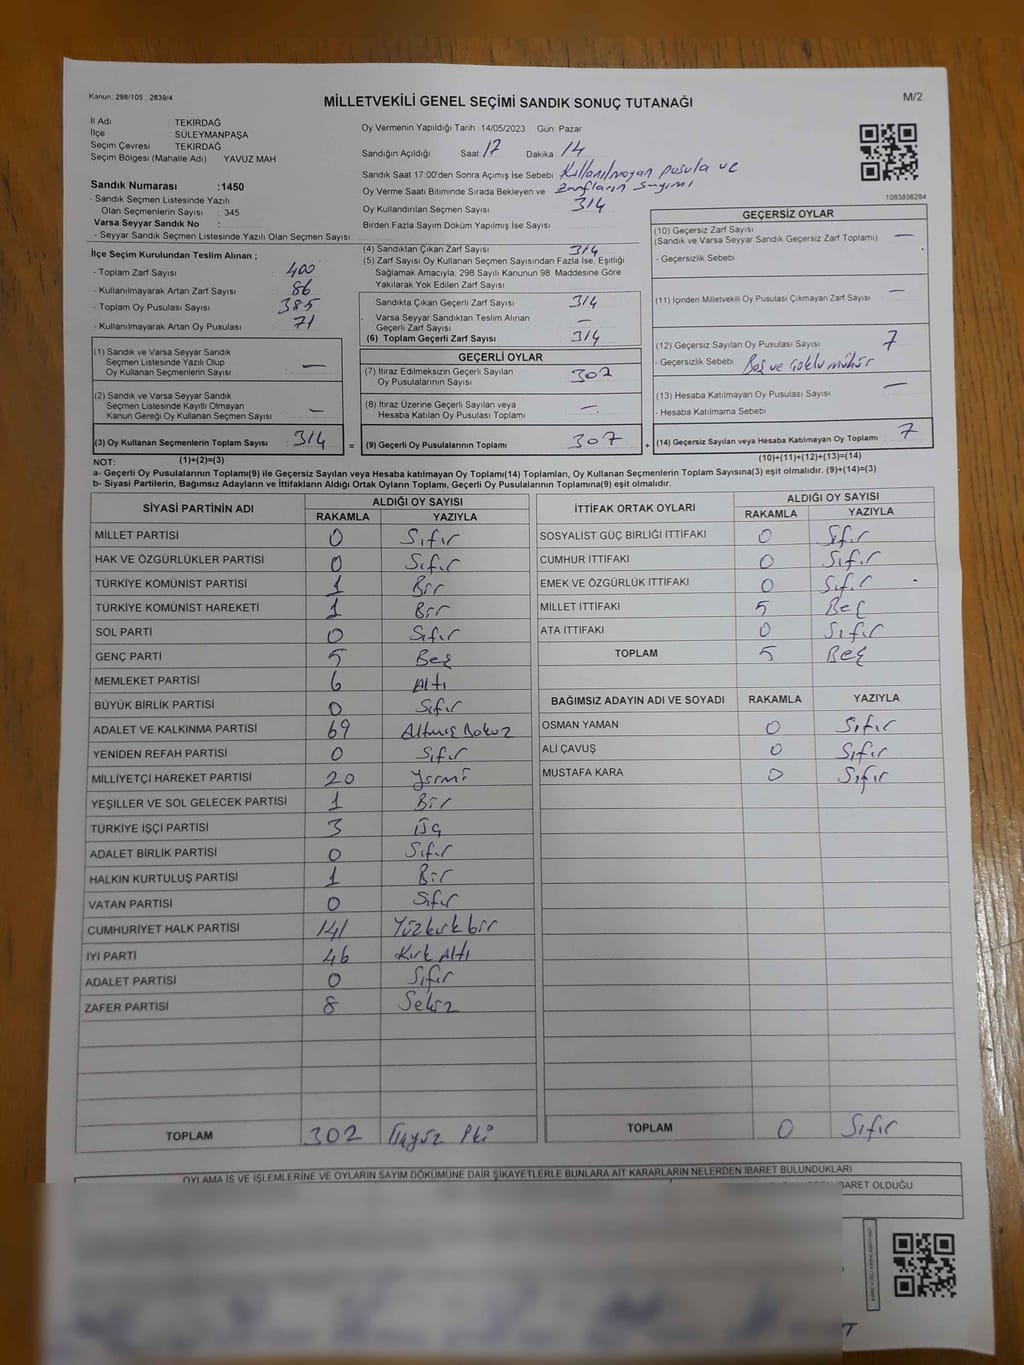 Kanun: 298/105 , 2839/4
MİLLETVEKİLİ GENEL SEÇİMİ SANDIK SONUÇ TUTANAĞI
M/2
İl Adı : TEKİRDAĞ
İlçe : SÜLEYMANPAŞA
Seçim Çevresi : TEKİRDAĞ
Seçim Bölgesi (Mahalle Adı) YAVUZ MAH
Sandık Numarası :1450
- Sandık Seçmen Listesinde Yazılı
Olan Seçmenlerin Sayısı : 345
Varsa Seyyar Sandık No :
- Seyyar Sandık Seçmen Listesinde Yazılı Olan Seçmen Sayısı
Oy Vermenin Yapıldığı Tarih :14/05/2023 Gün: Pazar
Sandığın Açıldığı Saat: 17 Dakika : 14
Sandık Saat 17:00'den Sonra Açımış İse Sebebi Kullanılmayan pusula ve
Oy Verme Saati Bitiminde Sırada Bekleyen ve zarfların sayımı
Oy Kullandırılan Seçmen Sayısı 314
Birden Fazla Sayım Döküm Yapılmış İse Sayısı :
1083856284
İlçe Seçim Kurulundan Teslim Alınan ;
- Toplam Zarf Sayısı : 400
- Kullanılmayarak Artan Zarf Sayısı : 86
- Toplam Oy Pusulası Sayısı : 385
- Kullanılmayarak Artan Oy Pusulası : 71
(1) Sandık ve Varsa Seyyar Sandık
Seçmen Listesinde Yazılı Olup
Oy Kullanan Seçmenlerin Sayısı : —
(2) Sandık ve Varsa Seyyar Sandık
Seçmen Listesinde Kayıtlı Olmayan
Kanun Gereği Oy Kullanan Seçmen Sayısı : —
(3) Oy Kullanan Seçmenlerin Toplam Sayısı : 314 =
(4) Sandıktan Çıkan Zarf Sayısı : 314
(5) Zarf Sayısı Oy Kullanan Seçmen Sayısından Fazla İse, Eşitliği
Sağlamak Amacıyla, 298 Sayılı Kanunun 98. Maddesine Göre
Yakılarak Yok Edilen Zarf Sayısı :
Sandıkta Çıkan Geçerli Zarf Sayısı : 314
Varsa Seyyar Sandıktan Teslim Alınan
Geçerli Zarf Sayısı : —
(6) Toplam Geçerli Zarf Sayısı : 314
GEÇERLİ OYLAR
(7) İtiraz Edilmeksizin Geçerli Sayılan
Oy Pusulalarının Sayısı : 307
(8) İtiraz Üzerine Geçerli Sayılan veya
Hesaba Katılan Oy Pusulası Toplamı : —
(9) Geçerli Oy Pusulalarının Toplamı : 307 +
GEÇERSİZ OYLAR
(10) Geçersiz Zarf Sayısı
(Sandık ve Varsa Seyyar Sandık Geçersiz Zarf Toplamı) : —
- Geçersizlik Sebebi :
(11) İçinden Milletvekili Oy Pusulası Çıkmayan Zarf Sayısı : —
(12) Geçersiz Sayılan Oy Pusulası Sayısı : 7
- Geçersizlik Sebebi : Boş ve çoklu mühür
(13) Hesaba Katılmayan Oy Pusulası Sayısı : —
- Hesaba Katılmama Sebebi :
(14) Geçersiz Sayılan veya Hesaba Katılmayan Oy Toplamı : 7
NOT: (1)+(2)=(3)
(10)+(11)+(12)+(13)=(14)
a- Geçerli Oy Pusulalarının Toplamı(9) ile Geçersiz Sayılan veya Hesaba katılmayan Oy Toplamı(14) Toplamları, Oy Kullanan Seçmenlerin Toplam Sayısına(3) eşit olmalıdır. (9)+(14)=(3)
b- Siyasi Partilerin, Bağımsız Adayların ve İttifakların Aldığı Ortak Oyların Toplamı, Geçerli Oy Pusulalarının Toplamına(9) eşit olmalıdır.
SİYASİ PARTİNİN ADI ALDIĞI OY SAYISI
RAKAMLA YAZIYLA
MİLLET PARTİSİ 0 Sıfır
HAK VE ÖZGÜRLÜKLER PARTİSİ 0 Sıfır
TÜRKİYE KOMÜNİST PARTİSİ 1 Bir
TÜRKİYE KOMÜNİST HAREKETİ 1 Bir
SOL PARTİ 0 Sıfır
GENÇ PARTİ 5 Beş
MEMLEKET PARTİSİ 6 Altı
BÜYÜK BİRLİK PARTİSİ 0 Sıfır
ADALET VE KALKINMA PARTİSİ 69 Altmış Dokuz
YENİDEN REFAH PARTİSİ 0 Sıfır
MİLLİYETÇİ HAREKET PARTİSİ 20 Yirmi
YEŞİLLER VE SOL GELECEK PARTİSİ 1 Bir
TÜRKİYE İŞÇİ PARTİSİ 3 Üç
ADALET BİRLİK PARTİSİ 0 Sıfır
HALKIN KURTULUŞ PARTİSİ 1 Bir
VATAN PARTİSİ 0 Sıfır
CUMHURİYET HALK PARTİSİ 141 Yüzkırkbir
İYİ PARTİ 46 Kırk Altı
ADALET PARTİSİ 0 Sıfır
ZAFER PARTİSİ 8 Sekiz
TOPLAM 302 Üçyüz İki
İTTİFAK ORTAK OYLARI ALDIĞI OY SAYISI
RAKAMLA YAZIYLA
SOSYALİST GÜÇ BİRLİĞİ İTTİFAKI 0 Sıfır
CUMHUR İTTİFAKI 0 Sıfır
EMEK VE ÖZGÜRLÜK İTTİFAKI 0 Sıfır
MİLLET İTTİFAKI 5 Beş
ATA İTTİFAKI 0 Sıfır
TOPLAM 5 Beş
BAĞIMSIZ ADAYIN ADI VE SOYADI RAKAMLA YAZIYLA
OSMAN YAMAN 0 Sıfır
ALİ ÇAVUŞ 0 Sıfır
MUSTAFA KARA 0 Sıfır
TOPLAM 0 Sıfır
OYLAMA İŞ VE İŞLEMLERİNE VE OYLARIN SAYIM DÖKÜMÜNE DAİR ŞİKAYETLERLE BUNLARA AİT KARARLARIN NELERDEN İBARET BULUNDUKLARI
İBARET OLDUĞU